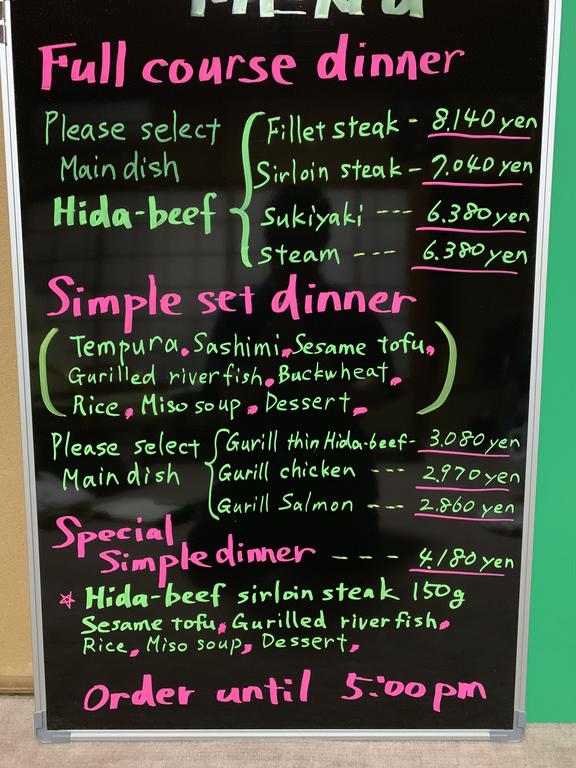 MENU
Full course dinner
Please select
Main dish
Hida-beef
Fillet steak - 8.140 yen
Sirloin steak - 7.040 yen
Sukiyaki --- 6.380 yen
steam --- 6.380 yen
Simple set dinner
(Tempura, Sashimi, Sesame tofu,
Gurilled river fish, Buckwheat,
Rice, Miso soup, Dessert,)
Please select
Main dish
Gurill thin Hida-beef- 3.080 yen
Gurill chicken --- 2,970 yen
Gurill Salmon --- 2.860 yen
Special
Simple dinner ---- 4.180 yen
☆ Hida-beef sirloin steak 150g
Sesame tofu, Gurilled river fish,
Rice, Miso soup, Dessert,
Order until 5:00 pm